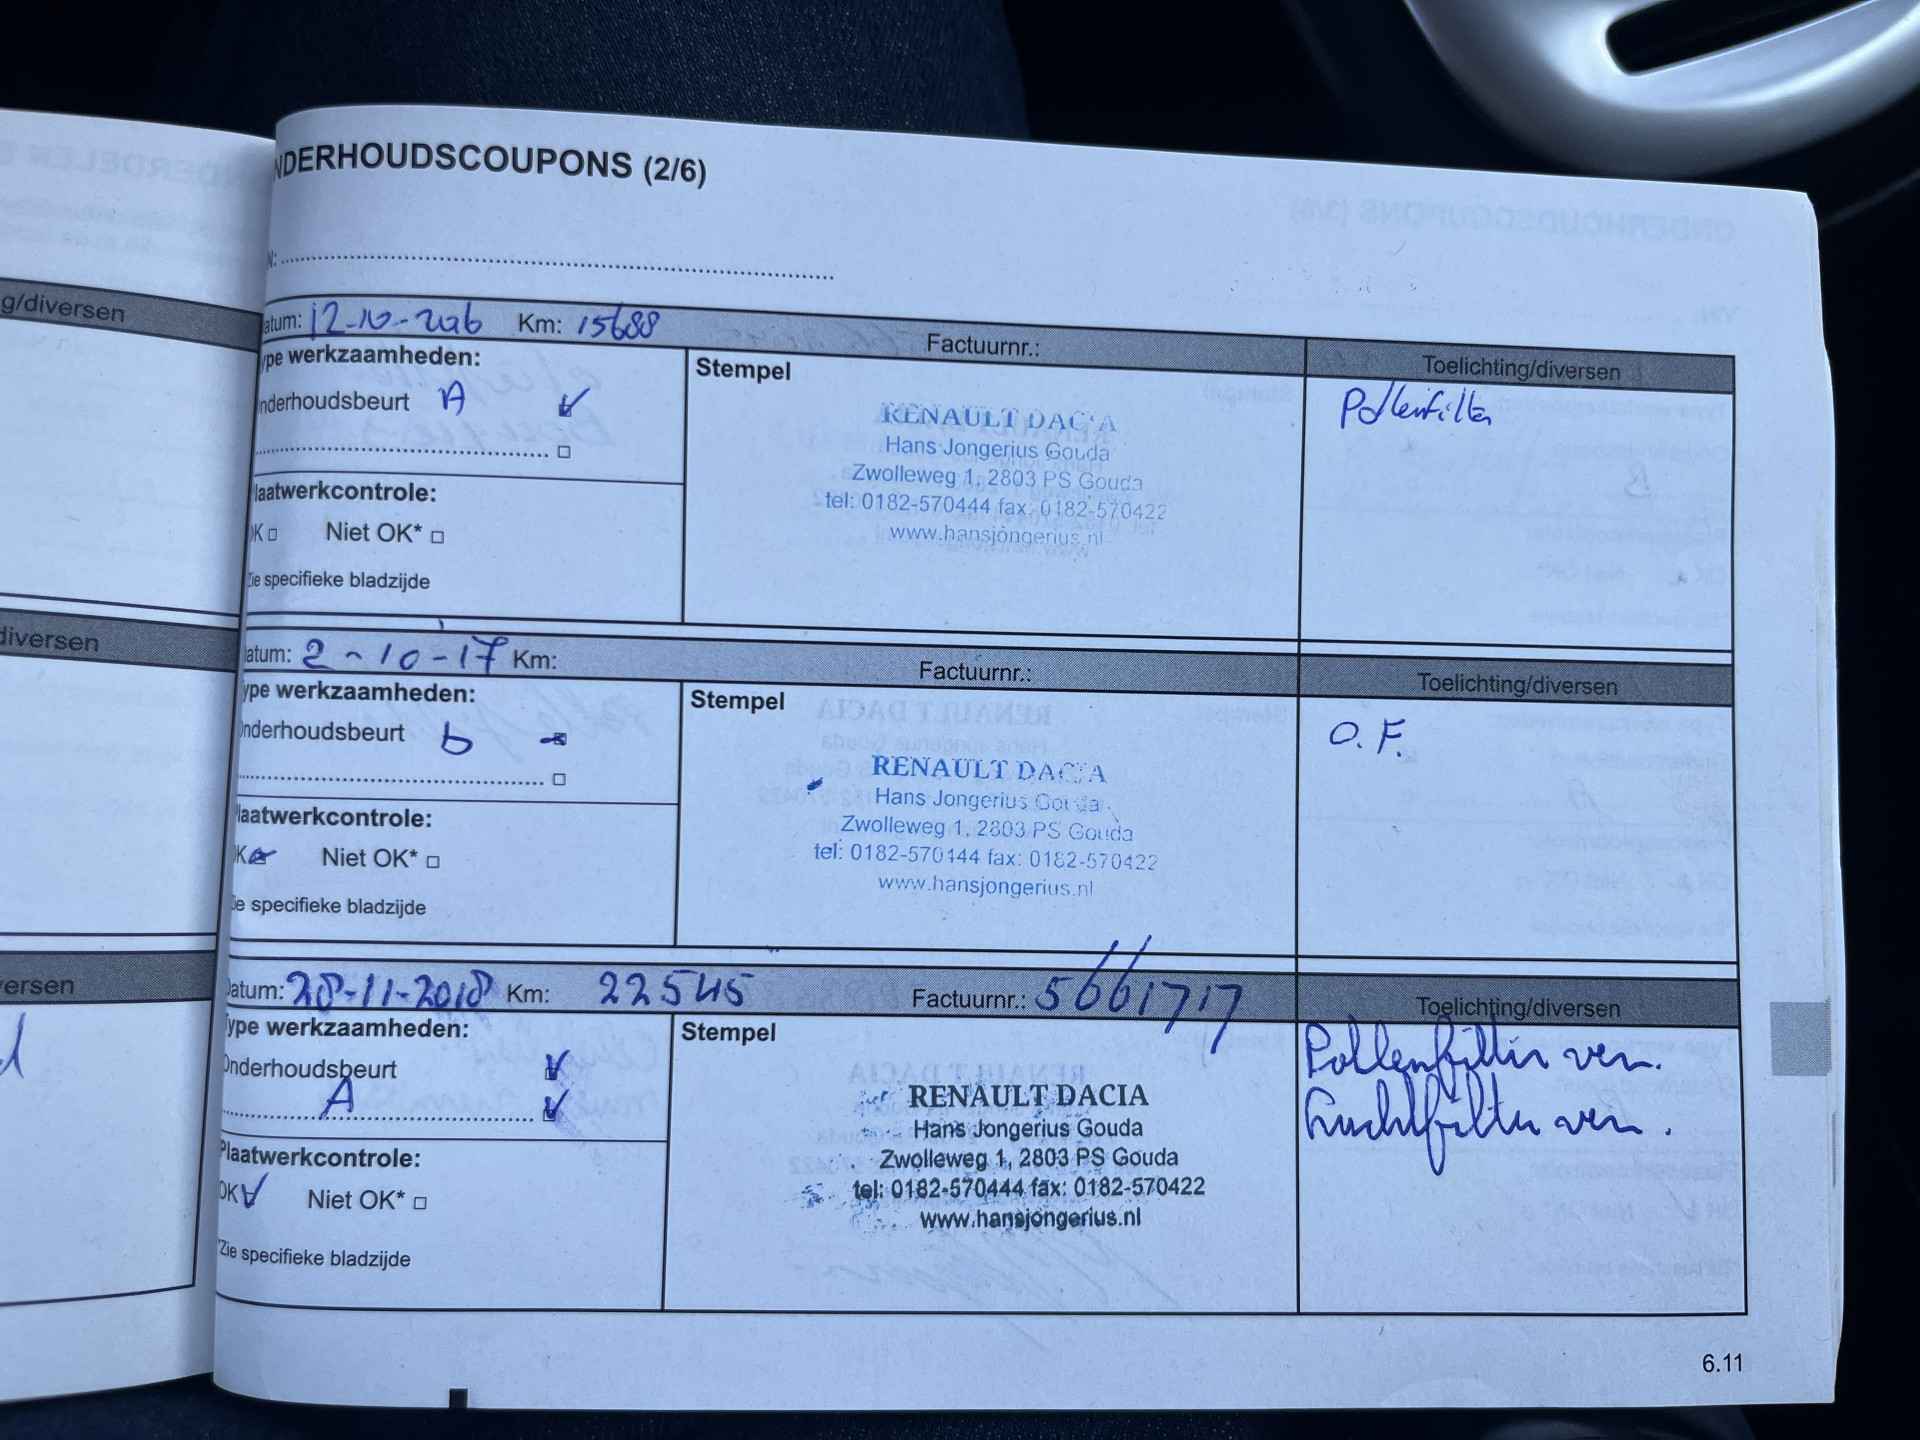 g/diversen
diversen
ersen
d
NDERHOUDSCOUPONS (2/6)
N:
atum: 12-10-2016 Km: 15688 Factuurnr.: Toelichting/diversen
ype werkzaamheden:
nderhoudsbeurt A
Stempel
RENAULT DACIA
Hans Jongerius Gouda
Zwolleweg 1, 2803 PS Gouda
tel: 0182-570444 fax: 0182-570422
www.hansjongerius.nl
Pollenfilter
laatwerkcontrole:
OK Niet OK*
Zie specifieke bladzijde
atum: 2-10-17 Km: Factuurnr.: Toelichting/diversen
ype werkzaamheden:
Onderhoudsbeurt b
Stempel
RENAULT DACIA
Hans Jongerius Gouda
Zwolleweg 1, 2803 PS Gouda
tel: 0182-570444 fax: 0182-570422
www.hansjongerius.nl
O.F.
laatwerkcontrole:
OK Niet OK*
ie specifieke bladzijde
Datum: 28-11-2018 Km: 22545 Factuurnr.: 5661717 Toelichting/diversen
Type werkzaamheden:
Onderhoudsbeurt
A
Stempel
RENAULT DACIA
Hans Jongerius Gouda
Zwolleweg 1, 2803 PS Gouda
tel: 0182-570444 fax: 0182-570422
www.hansjongerius.nl
Pollenfilter ver.
Luchtfilter ver.
Plaatwerkcontrole:
OK Niet OK*
*Zie specifieke bladzijde
6.11